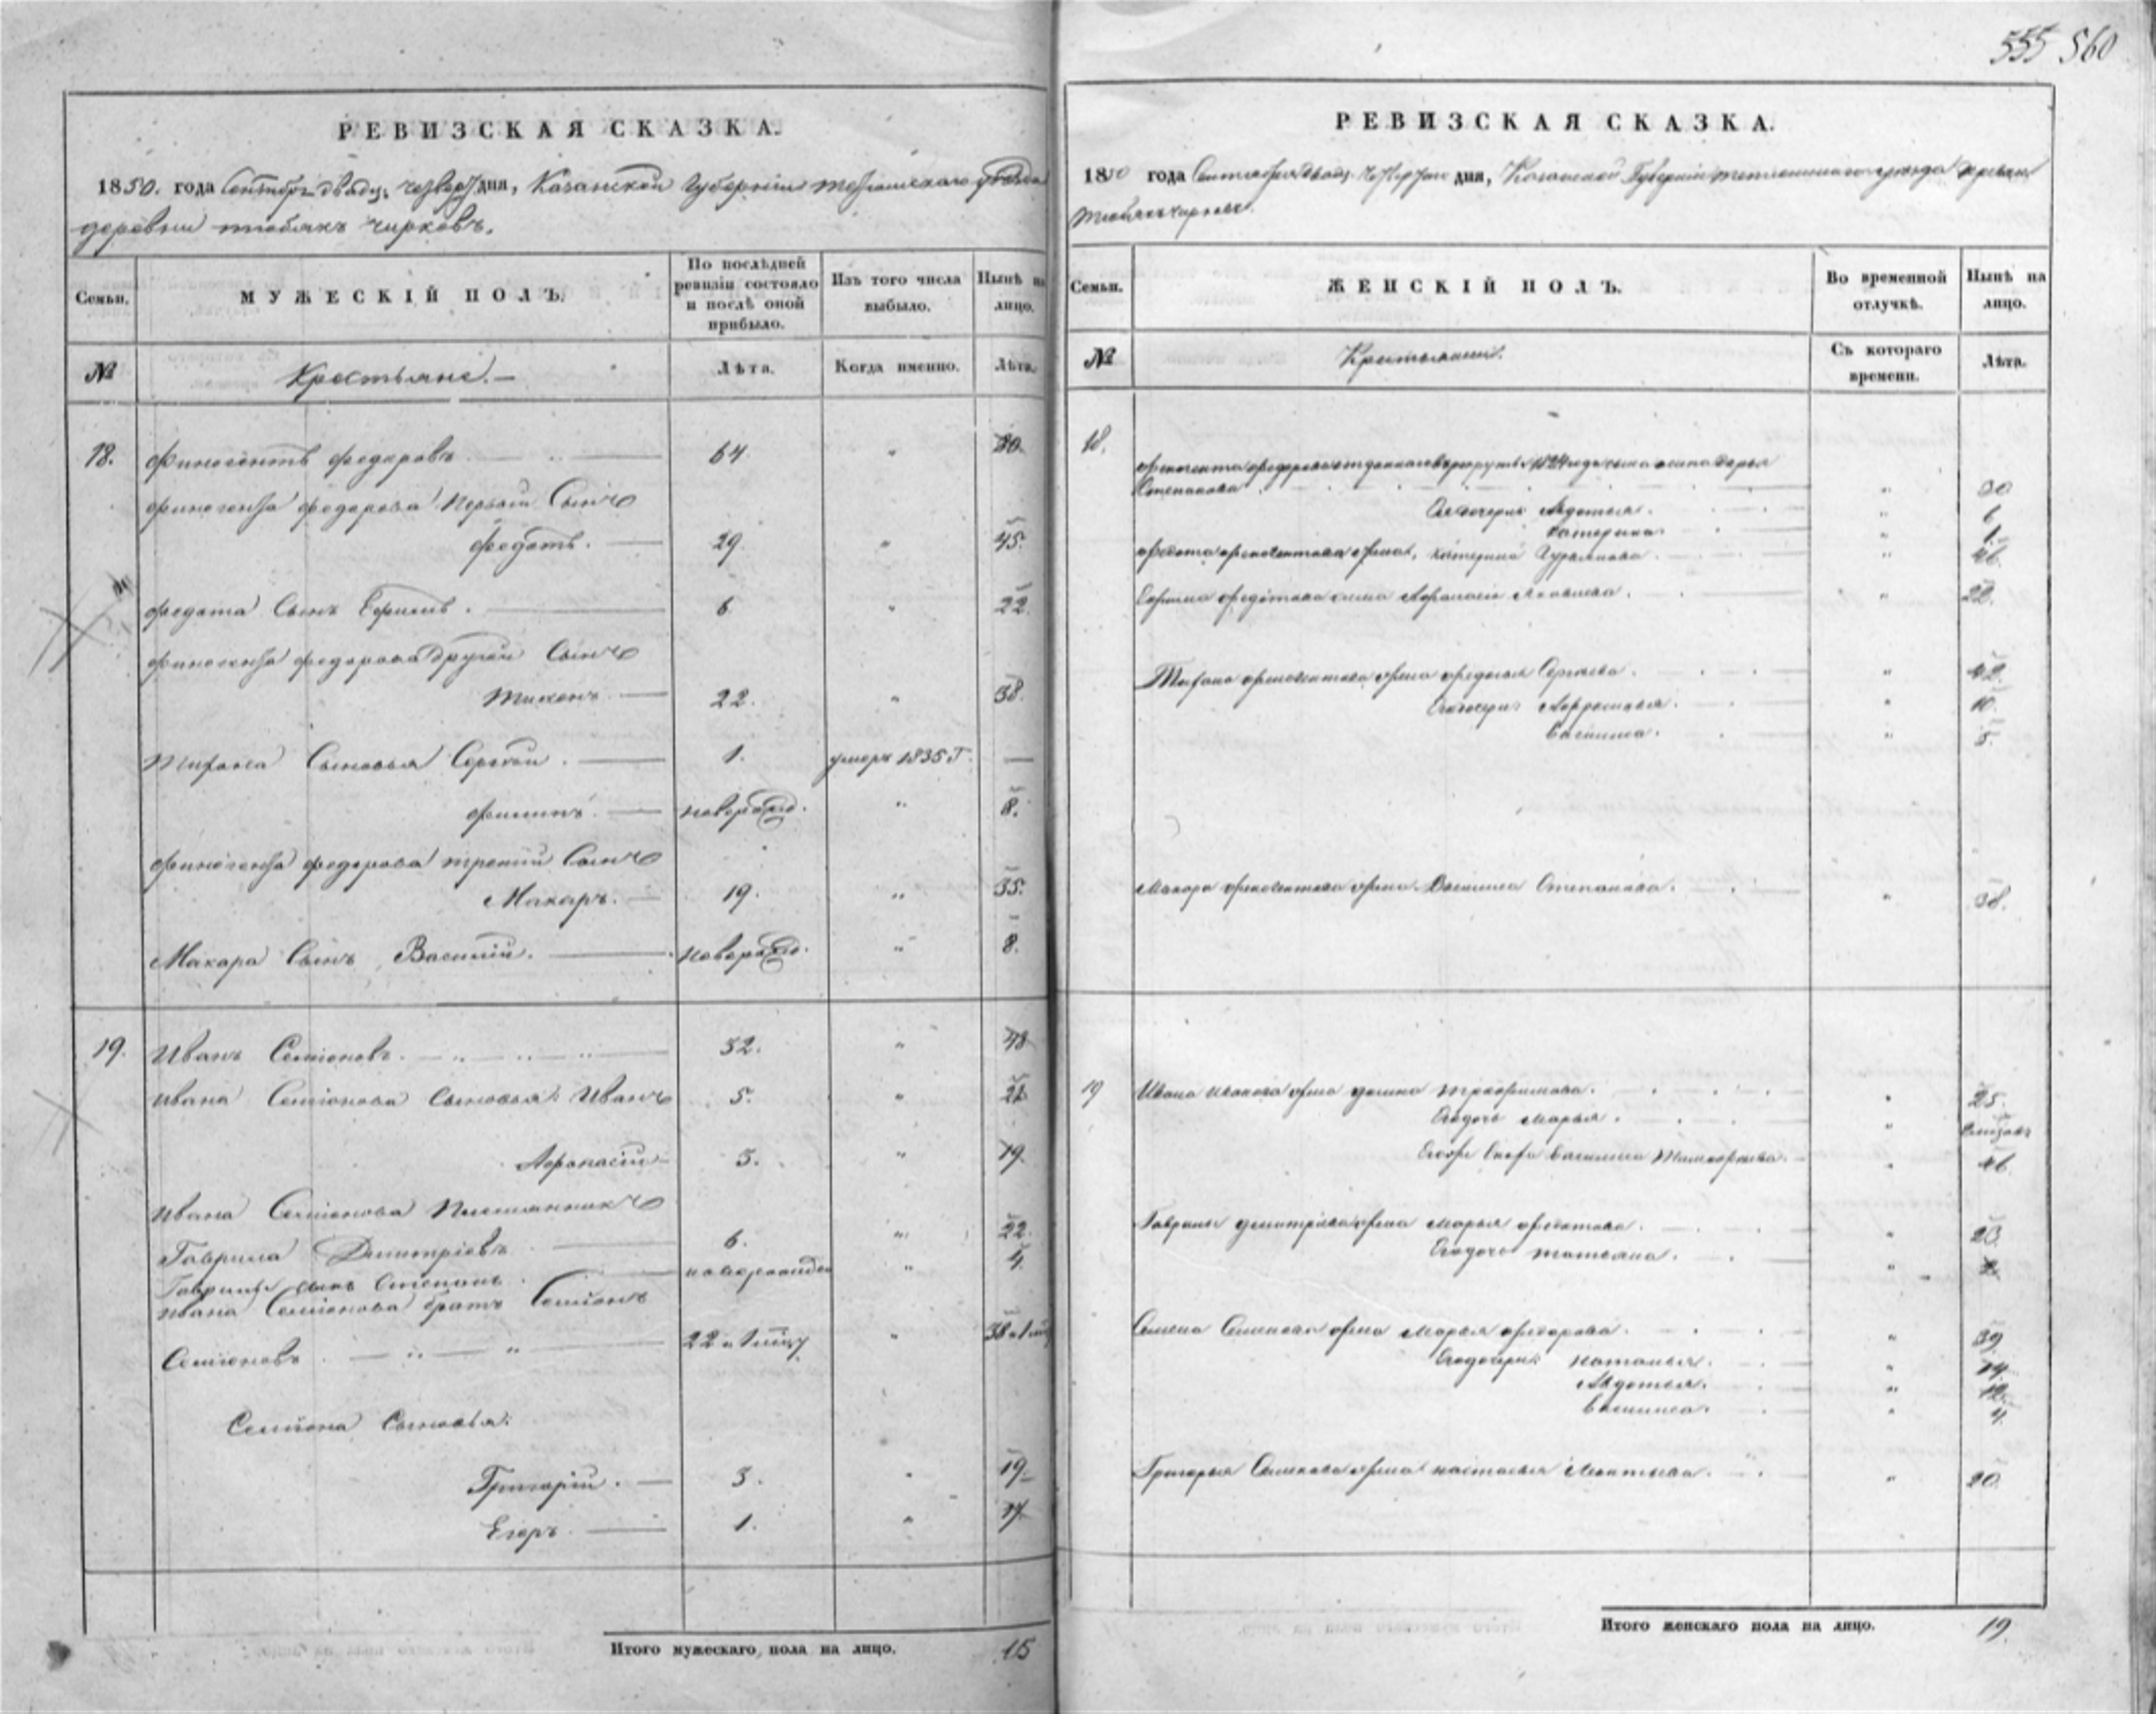 555 560
РЕВИЗСКАЯ СКАЗКА.
1850. года Сентября двадц. четверт дня, Казанской Губернии Тетюшскаго уезда
деревни тюбякъ чирковъ.
Семьи. МУЖЕСКІЙ ПОЛЪ. По послѣдней ревизіи состояло и послѣ оной прибыло. Изъ того числа выбыло. Нынѣ на лицо.
№ Крестьяне. Лѣта. Когда именно. Лѣта.
18. Финогентъ федоровъ 64 " 80.
финогента федорова первый Сынъ
Федотъ. 29. " 45.
федота Сынъ Ефимъ. 6 " 22.
финогента федорова другой Сынъ
Тихонъ. 22. " 38.
Тихона Сыновья Сергей. 1. умеръ 1835 Г. —
филипъ. новорожд. " 8.
финогента федорова третий Сынъ
Макаръ. 19. " 35.
Макара Сынъ Василий. новорожд. " 8.
19. Иванъ Семионовъ. 32. " 48
Ивана Семионова Сыновья: Иванъ 5. " 21
Афонасий 3. " 19.
Ивана Семионова Племянникъ
Гаврила Дмитриевъ 6. " 22.
Гаврилы сынъ Степанъ новорожден " 4.
Ивана Семионова братъ Семионъ
Семионовъ. 22 и 1 мѣсц " 38 и 1 мѣс
Семиона Сыновья:
Григорий. 3. " 19.
Егоръ. 1. " 17.
Итого мужескаго пола на лицо. 15
РЕВИЗСКАЯ СКАЗКА.
1850 года Сентября двадц. четвертаго дня, Казанской Губернии Тетюшскаго уезда деревни
Тюбякъ чирковъ.
Семьи. ЖЕНСКІЙ ПОЛЪ. Во временной отлучкѣ. Нынѣ на лицо.
№ Крестьянки. Съ котораго времени. Лѣта.
18. финогента федорова отданнаго в рекруты 1824 года сына жена Дарья
Степанова. " 30
Ея дочери Авдотья. " 6
Катерина. " 1.
федота финогентова жена, Катерина Гурьянова. " 46.
Ефима федотова жена Афанасия Яковлева. " 22.
Тихона финогентова жена федосья Сергеева. " 42.
Его дочери Афросинья. " 10.
Василиса. " 5.
Макара финогентова жена Василиса Степанова. " 38.
19 Ивана Иванова жена Трофимова. " 25.
Его дочь Марья. "
Василиса " 46
Гаврилы дмитриева жена Марья федотова. " 23.
Его дочь Татьяна. " 2
Семена Семенова жена Марья федорова. " 39
Его дочери Наталья. " 14.
Авдотья. " 12.
Василиса. " 4.
Григорья Семенова жена Настасья Леонтьева. " 20.
Итого женскаго пола на лицо. 19.